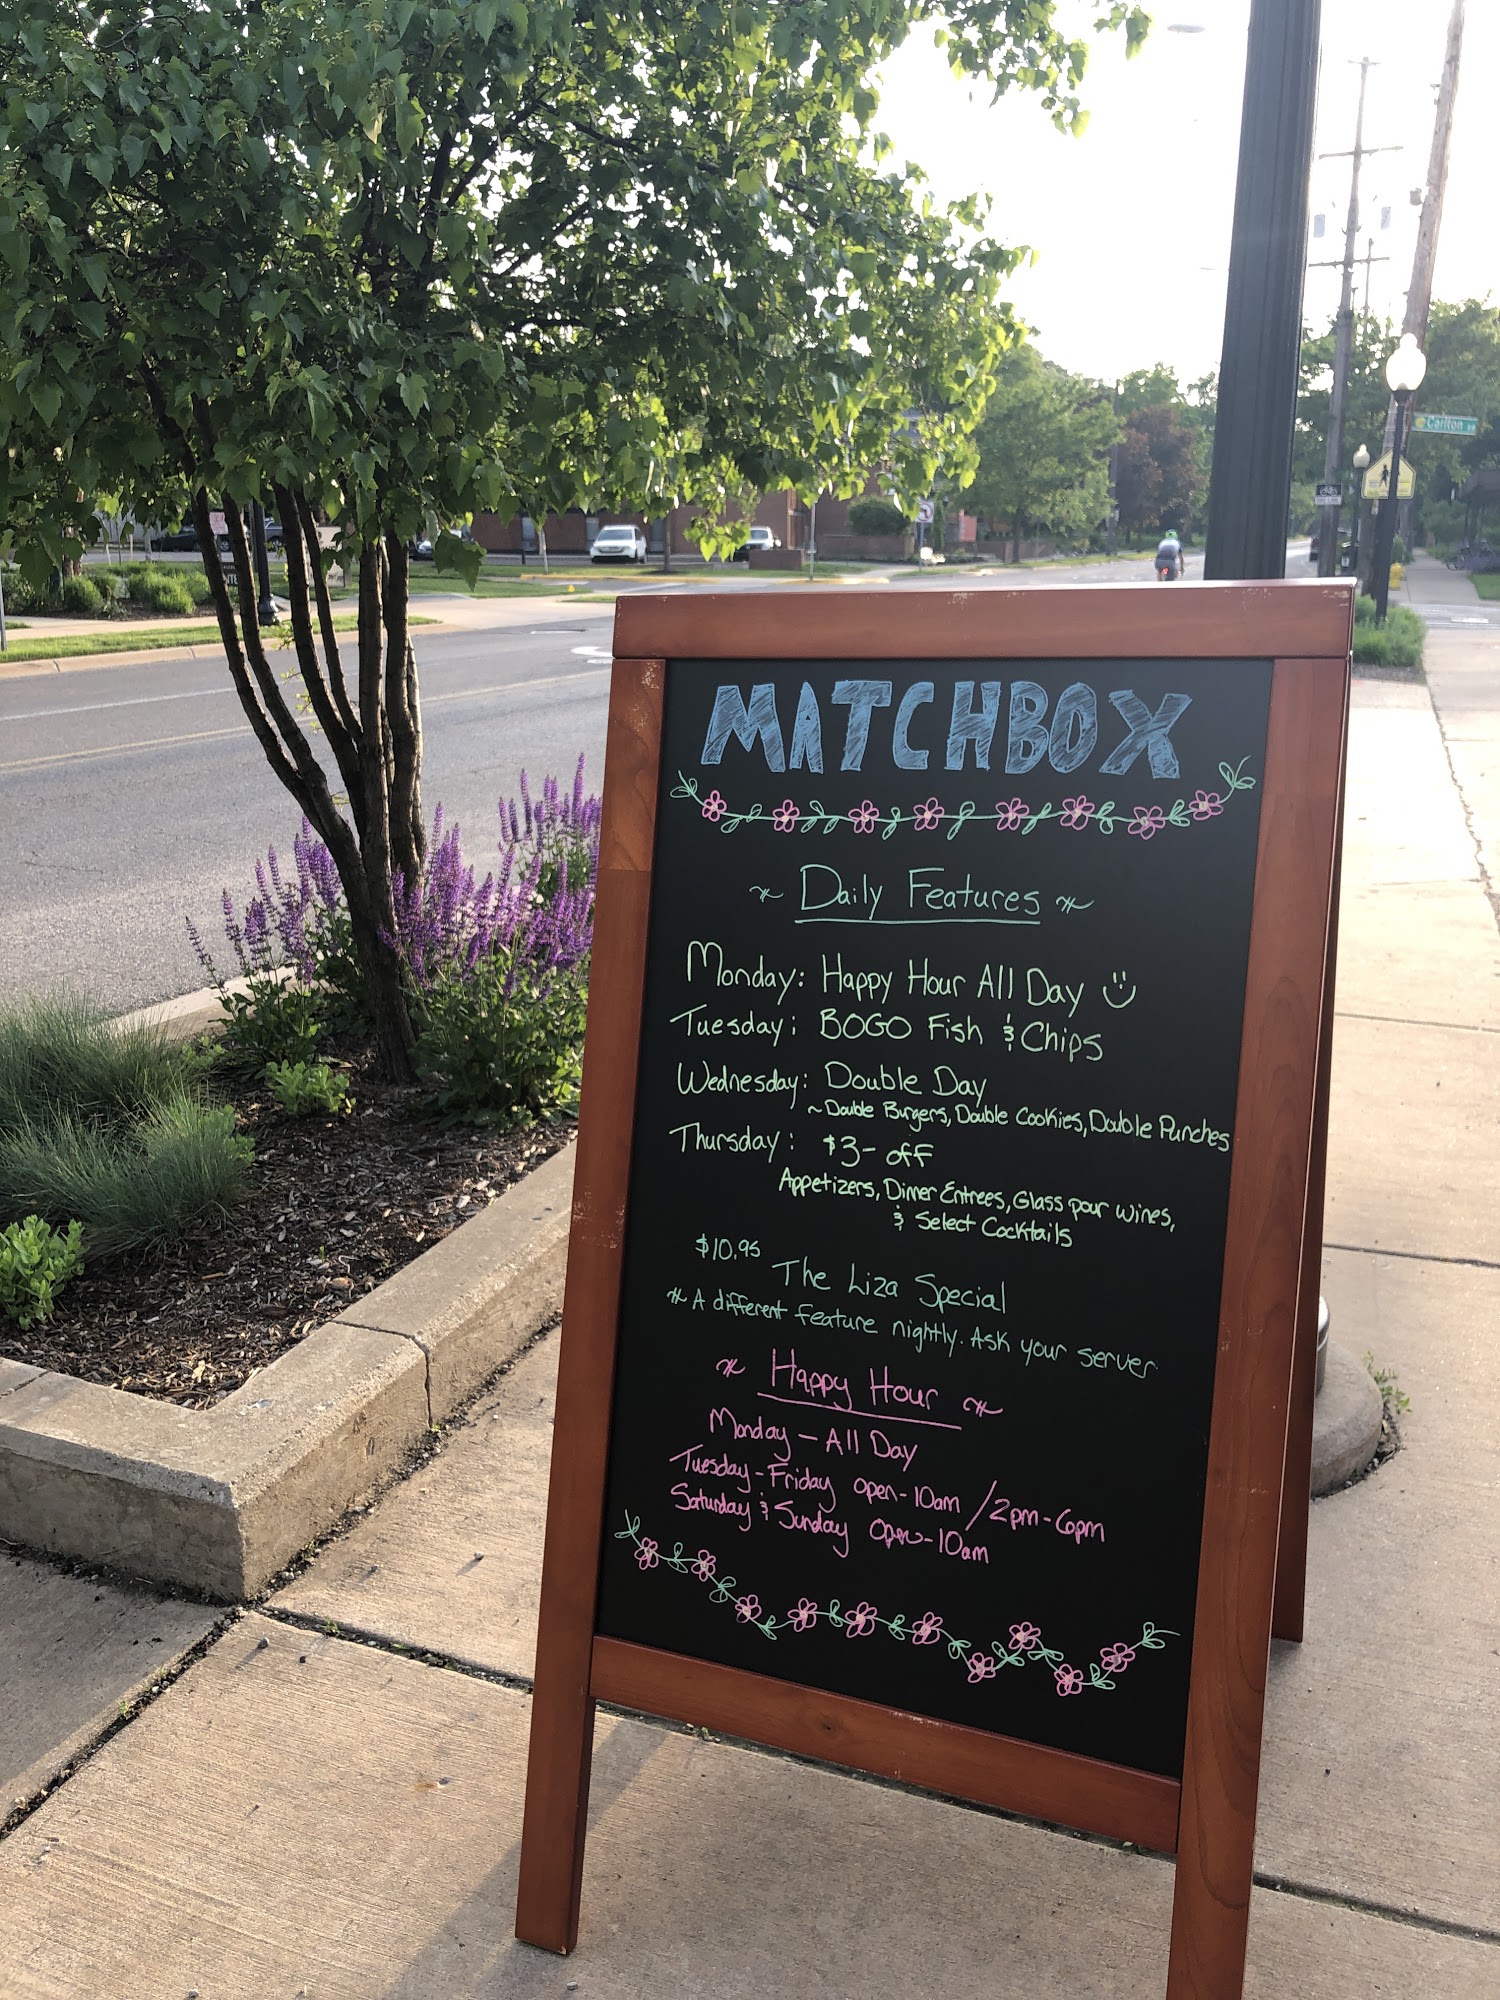 MATCHBOX
Daily Features
Monday: Happy Hour All Day
Tuesday: BOGO Fish & Chips
Wednesday: Double Day
~Double Burgers, Double Cookies, Double Punches
Thursday: $3- off
Appetizers, Dinner Entrees, Glass pour wines,
& Select Cocktails
$10.95 The Liza Special
A different feature nightly. Ask your server
Happy Hour
Monday - All Day
Tuesday - Friday open - 10am / 2pm - 6pm
Saturday & Sunday Open - 10am
Carlton